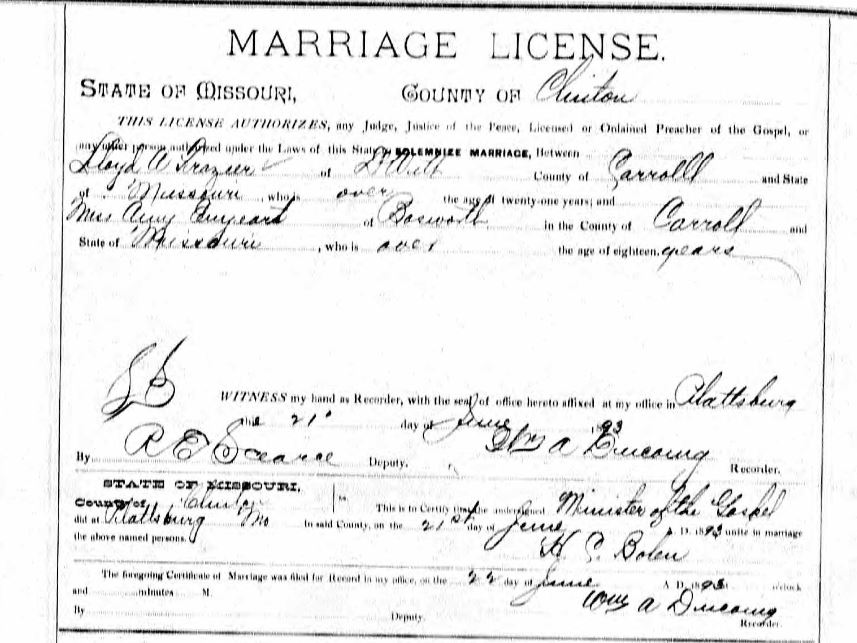 MARRIAGE LICENSE.
STATE OF MISSOURI, COUNTY OF Clinton
THIS LICENSE AUTHORIZES, any Judge, Justice of the Peace, Licensed or Ordained Preacher of the Gospel, or
any other person authorized under the Laws of this State to SOLEMNIZE MARRIAGE, Between
Lloyd W Frazier of DeWitt County of Carrolll and State
of Missouri, who is over the age of twenty-one years; and
Miss Amy of Bosworth in the County of Carroll and
State of Missouri, who is over the age of eighteen years
WITNESS my hand as Recorder, with the seal of office hereto affixed at my office in Plattsburg
this 21" day of June 1893
By R E Scearce Deputy. Wm A Recorder.
STATE OF MISSOURI,
County of Clinton ss. This is to Certify that the undersigned Minister of the Gospel
did at Plattsburg Mo in said County, on the 21st day of June A. D. 1893 unite in marriage
the above named persons. H C Bolen
The foregoing Certificate of Marriage was filed for Record in my office, on the 22 day of June A. D. 1893 at o'clock
and minutes M. Wm A
By Deputy. Recorder.